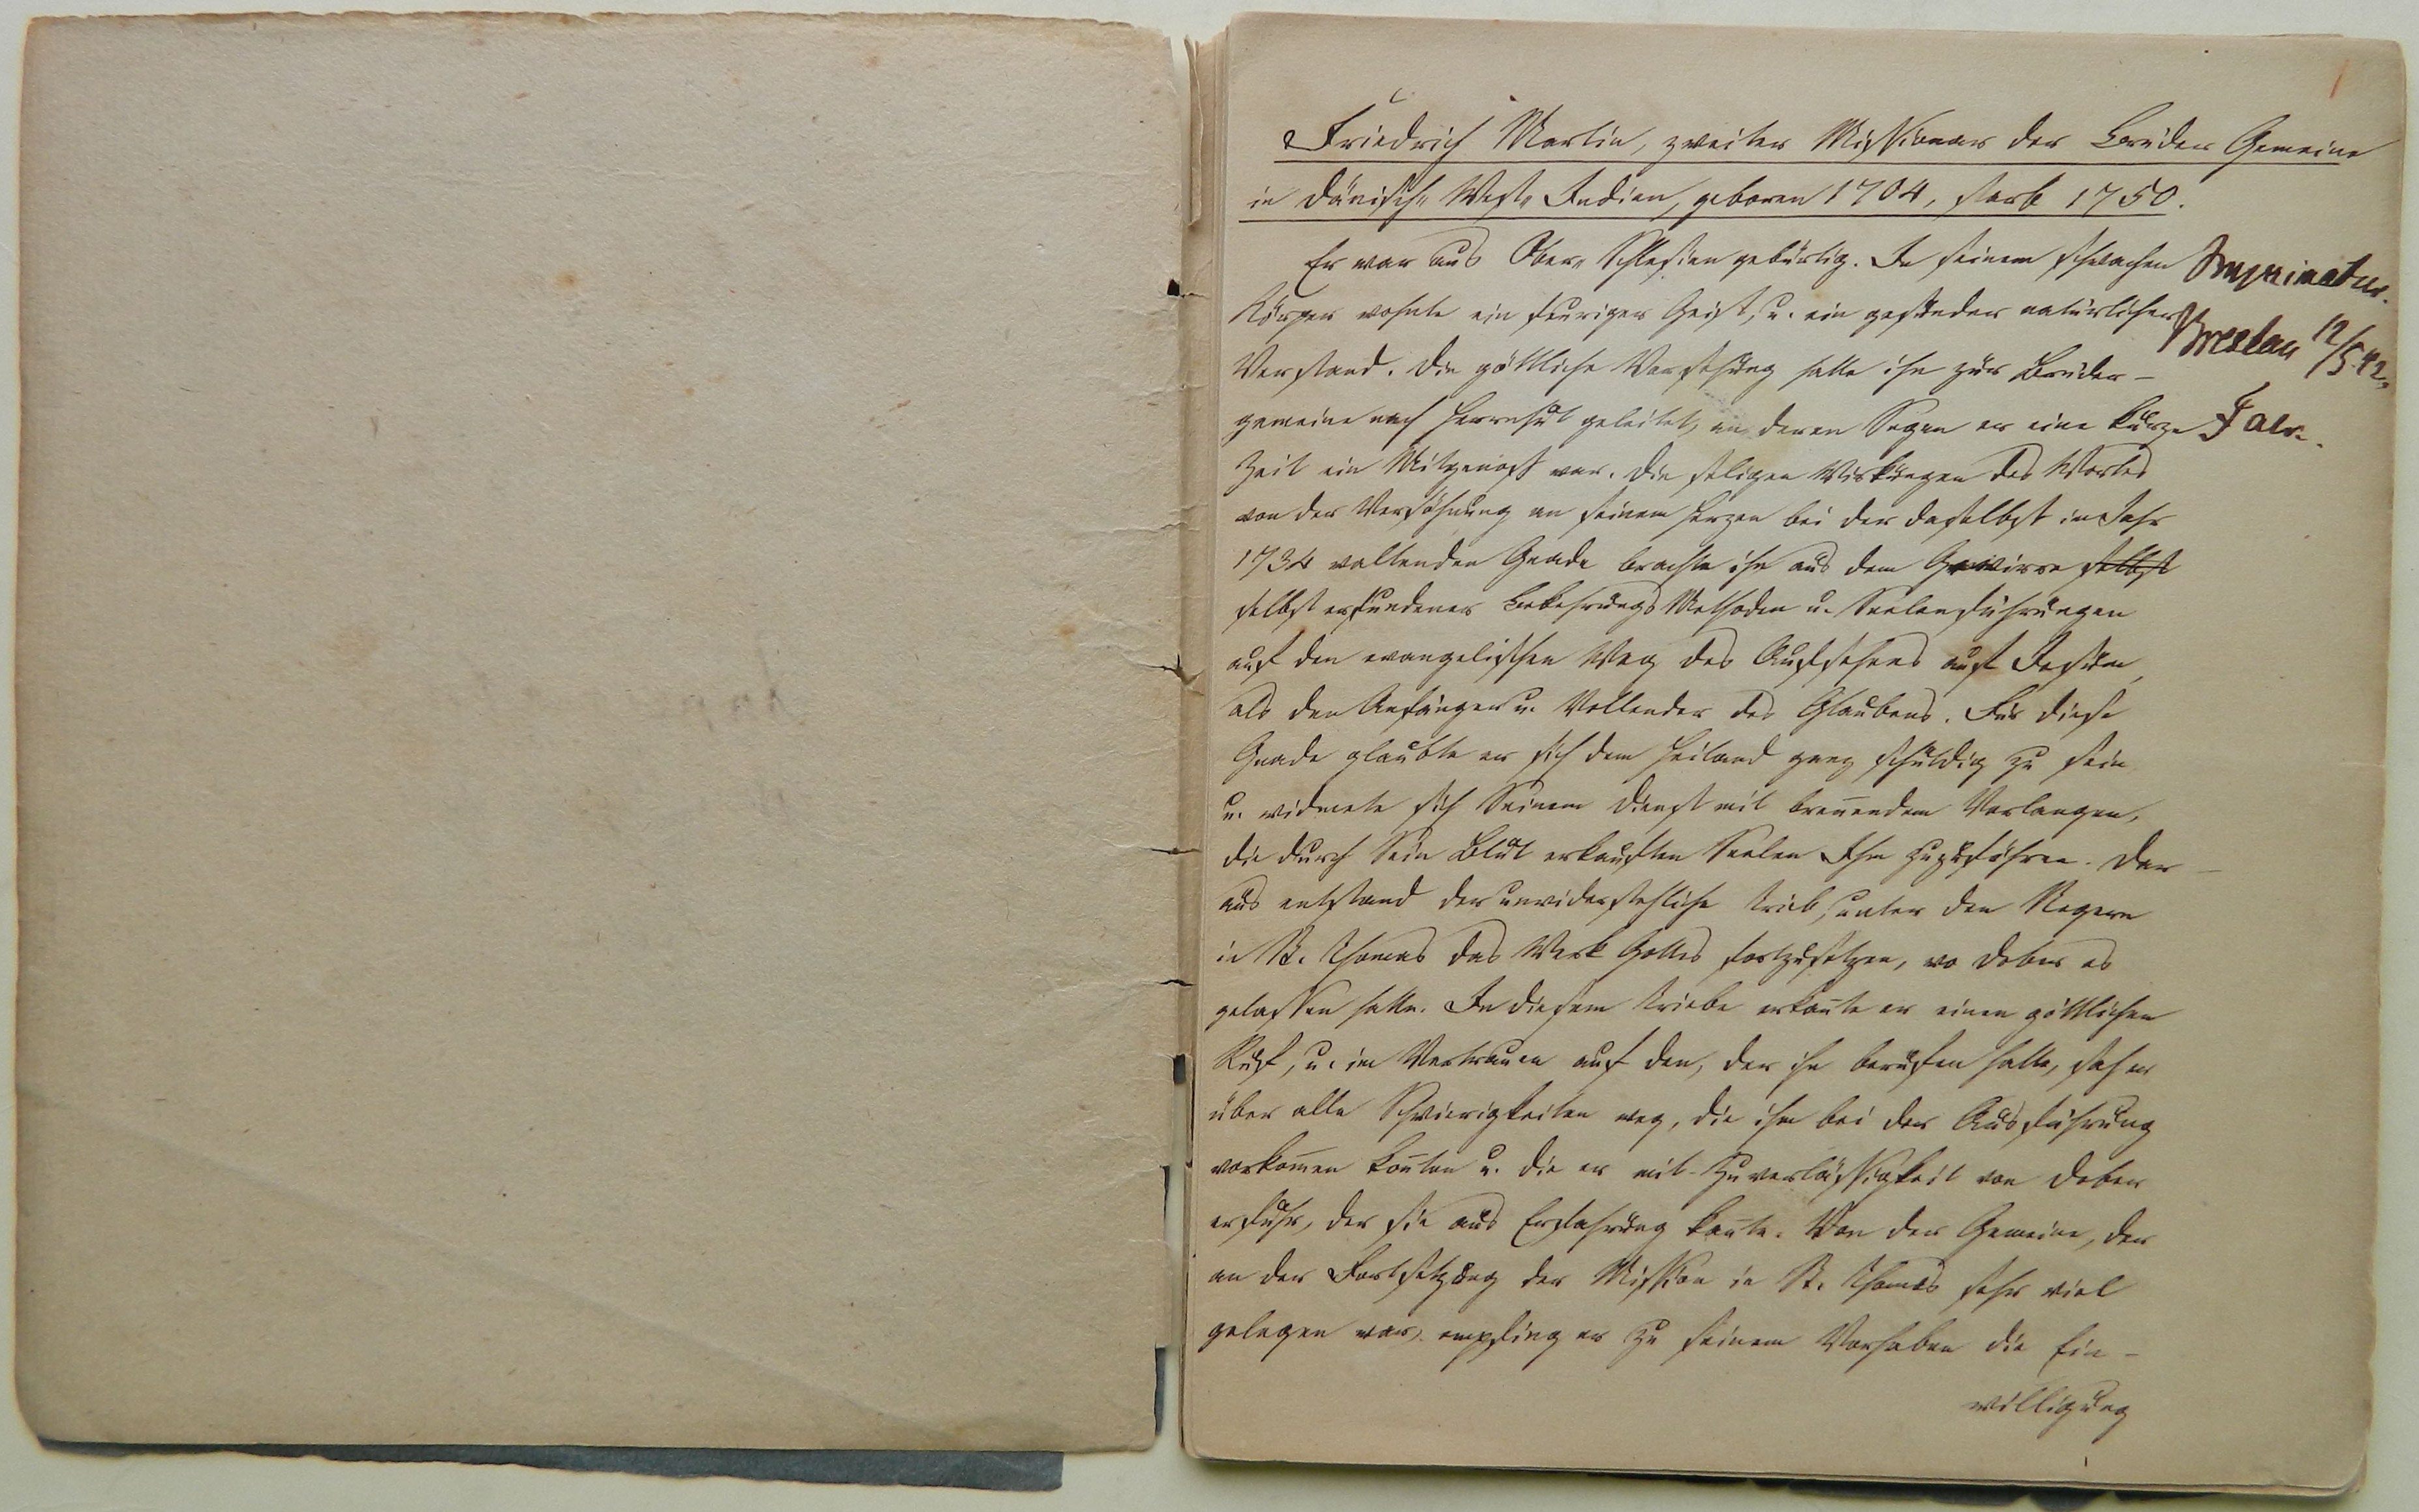 Friedrich Martin, zweiter Missionar der Brüder Gemeine
in dänisch„ West„ Indien, geboren 1704, starb 1750.
Er war aus Ober„ Schlesien gebürtig. In seinem schwachen
Körper wohnte ein feuriger Geist, u. ein gesunder natürlicher
Verstand. Die göttliche Vorsehung hatte ihn zur Brüder-
gemeine nach Herrnhut geleitet, an deren Segen er eine kurze
Zeit ein Mitgenoß war. Die seligen Wirkungen des Wortes
von der Versöhnung an seinem Herzen bei der daselbst im Jahr
1734 waltenden Gnade brachte ihn aus dem Gewirre selbst
selbst erfundener Bekehrungs Methoden u. Seelenführungen
auf den evangelischen Weg des Aufsehens auf Jesum,
als den Anfänger u. Vollender des Glaubens. Für diese
Gnade glaubte er sich dem Heiland ganz schuldig zu sein
u. widmete sich Seinem Dienst mit breñendem Verlangen,
die durch Sein Blut erkauften Seelen Ihm zuzuführen. Dar-
aus entstand der unwiderstehliche Trieb, unter den Negern
in St. Thomas das Werk Gottes fortzusetzen, wo Dober es
gelassen hatte. In diesem Triebe erkañte er einen göttlichen
Ruf, u. im Vertrauen auf den, der ihn berufen hatte, sah er
über alle Schwierigkeiten weg, die ihm bei der Ausführung
vorkom̃en koñten u. die er mit Zuverlässigkeit von Dober
erfuhr, der sie aus Erfahrung kañte. Von der Gemeine, der
an der Fortsetzung der Mission in St. Thomas sehr viel
gelegen war, empfing er zu seinem Vorhaben die Ein-
willigung
Imprimatur.
Breslau 12/5.42.